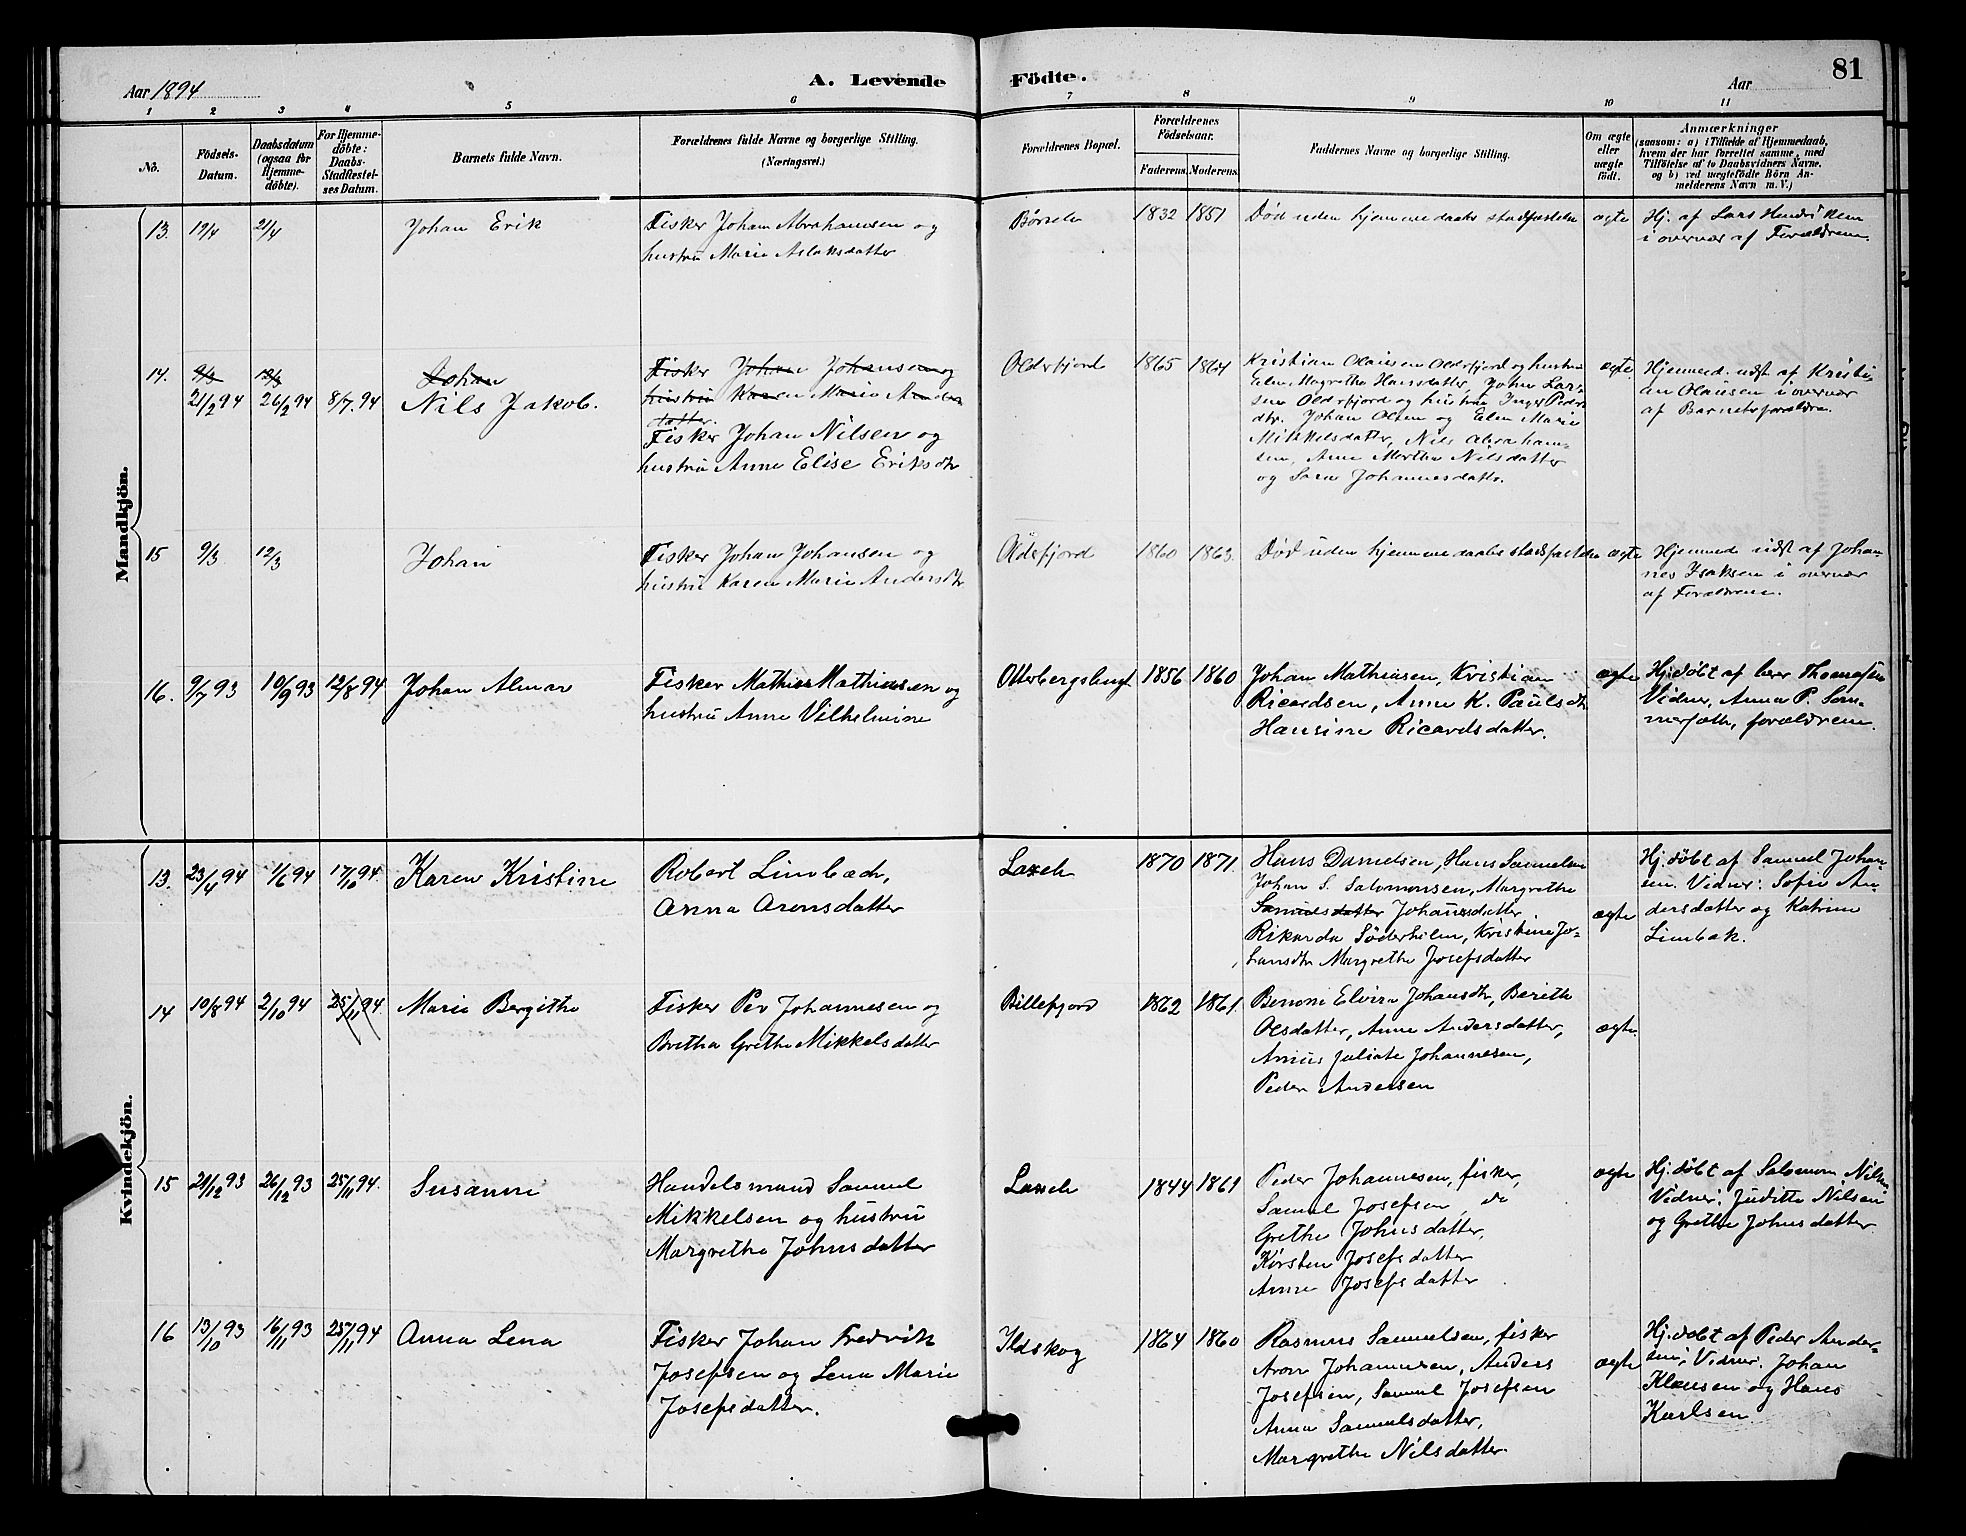 Aar 1894
A. Levende
Födte.
Aar
81
1 2 3 4 5 6 7 8 9 10 11
No.
Födsels-
Datum.
Daabsdatum
(ogsaa for
Hjemme-
döbte).
For Hjemme-
döbte:
Daabs-
Stadfæstel-
ses Datum.
Barnets fulde Navn.
Forældrenes fulde Navne og borgerlige Stilling.
(Næringsvei.)
Forældrenes Bopæl.
Forældrenes
Födselsaar.
Faderens. Moderens.
Faddernes Navne og borgerlige Stilling.
Om ægte
eller
uægte
født.
Anmærkninger
(saasom: a) i Tilfælde af Hjemmedaab,
hvem der har forrettet samme, med
Tilföielse af to Daabsvidners Navne,
og b) ved uægtefödte Börn An-
melderens Navn m. V.)
Mandkjön.
13. 19/4 21/4
Johan Erik
Fisker Johan Abrahamsen og
hustru Marie Aslaksdatter
Børselv
1832 1851
Død uden hjemmedaabs stadfæstelse
ægte
Hj. af Lars Hendriksen
i overvær af Forældrene.
14. 9/3 12/3
21/2 94 26/2 94 8/7 94
Johan
Nils Jakob.
Fisker Johan Johansen og
hustru Karen Marie Anders
datter.
Fisker Johan Nilsen og
hustru Anne Elise Eriksdtr
Olderfjord
1865 1864
Kristian Olausen Olderfjord og hustru
Elen Magrethe Hansdatter, John Lar-
sen Olderfjord og hustru Inger Peders
dtr. Johan Olsen og Elen Marie
Mikkelsdatter, Nils Abraham-
sen, Anne Marthe Nilsdatter
og Sara Johannesdatter.
ægte
Hjemmed. udf. af Kristi-
an Olausen i overvær
af Barnets forældre.
15 9/3 12/3
Johan
Fisker Johan Johansen og
hustru Karen Marie Andersdtr
Oldefjord
1860 1863.
Død uden hjemmedaabs stadfæstelse
ægte
Hjemmed udf. af Johan
nes Isaksen i overvær
af Forældrene.
16. 9/7 93 10/9 93 12/8 94
Johan Almar
Fisker Mathias Mathiassen og
hustru Anne Vilhelmine
Otterbergsbugt
1856 1860
Johan Mathiasen, Kristian
Ricardsen, Anne K. Paulsdtr
Hansine Ricardsdatter.
ægte
Hj. døbt af lærer Thomassen
Vidner, Anna P. Som-
merfeldt, forældrene.
Kvindekjön.
13. 23/4 94 1/6 94 17/10 94
Karen Kristine
Robert Limbach,
Anna Aronsdatter
Laxelv
1870 1871.
Hans Danielsen, Hans Samuelsen
Johan S. Salomonsen, Margrethe
Samuelsdatter Johansdatter
Rikarda Söderholm, Kristine Jo-
hansdtr Margrethe Josefsdatter
ægte
Hj. døbt af Samuel Johan-
sen. Vidner: Sofie An-
dersdatter og Katrine
Limbak.
14 10/8 94 2/10 94 25/11 94
Marie Bergithe
Fisker Per Johannesen og
Bretha Grethe Mikkelsdatter
Billefjord
1862 1861.
Benone Elvira Johansdtr, Berith
Olsdatter, Anne Andersdatter,
Juliate Johannesen,
Peder Andersen
ægte.
15 21/12 93 26/12 93 25/11 94.
Susanne
Handelsmand Samuel
Mikkelsen og hustru
Margrethe Johnsdatter
Laxelv
1844 1861
Peder Johannesen, fisker,
Samuel Josefsen, do
Grethe Johnsdatter,
Kirsten Josefsdatter
Anne Josefsdatter
ægte
Hj. døbt af Salomon Nilsen
Vidner: Juditte Nilsen
og Grethe Johnsdatter
16 13/10 93 16/11 93 25/11 94
Anna Lena
Fisker Johan Fredrik
Josefsen og Lena Marie
Josefsdatter.
Ildskog
1864 1860
Rasmus Samuelsen, fisker
Aron Johannesen, Anders
Josefsen, Samuel Josefsen
Anna Samuelsdatter,
Margrethe Nilsdatter.
ægte
Hj. døbt af Peder Ander-
sen, Vidner: Johan
Klausen og Hans
Karlsen